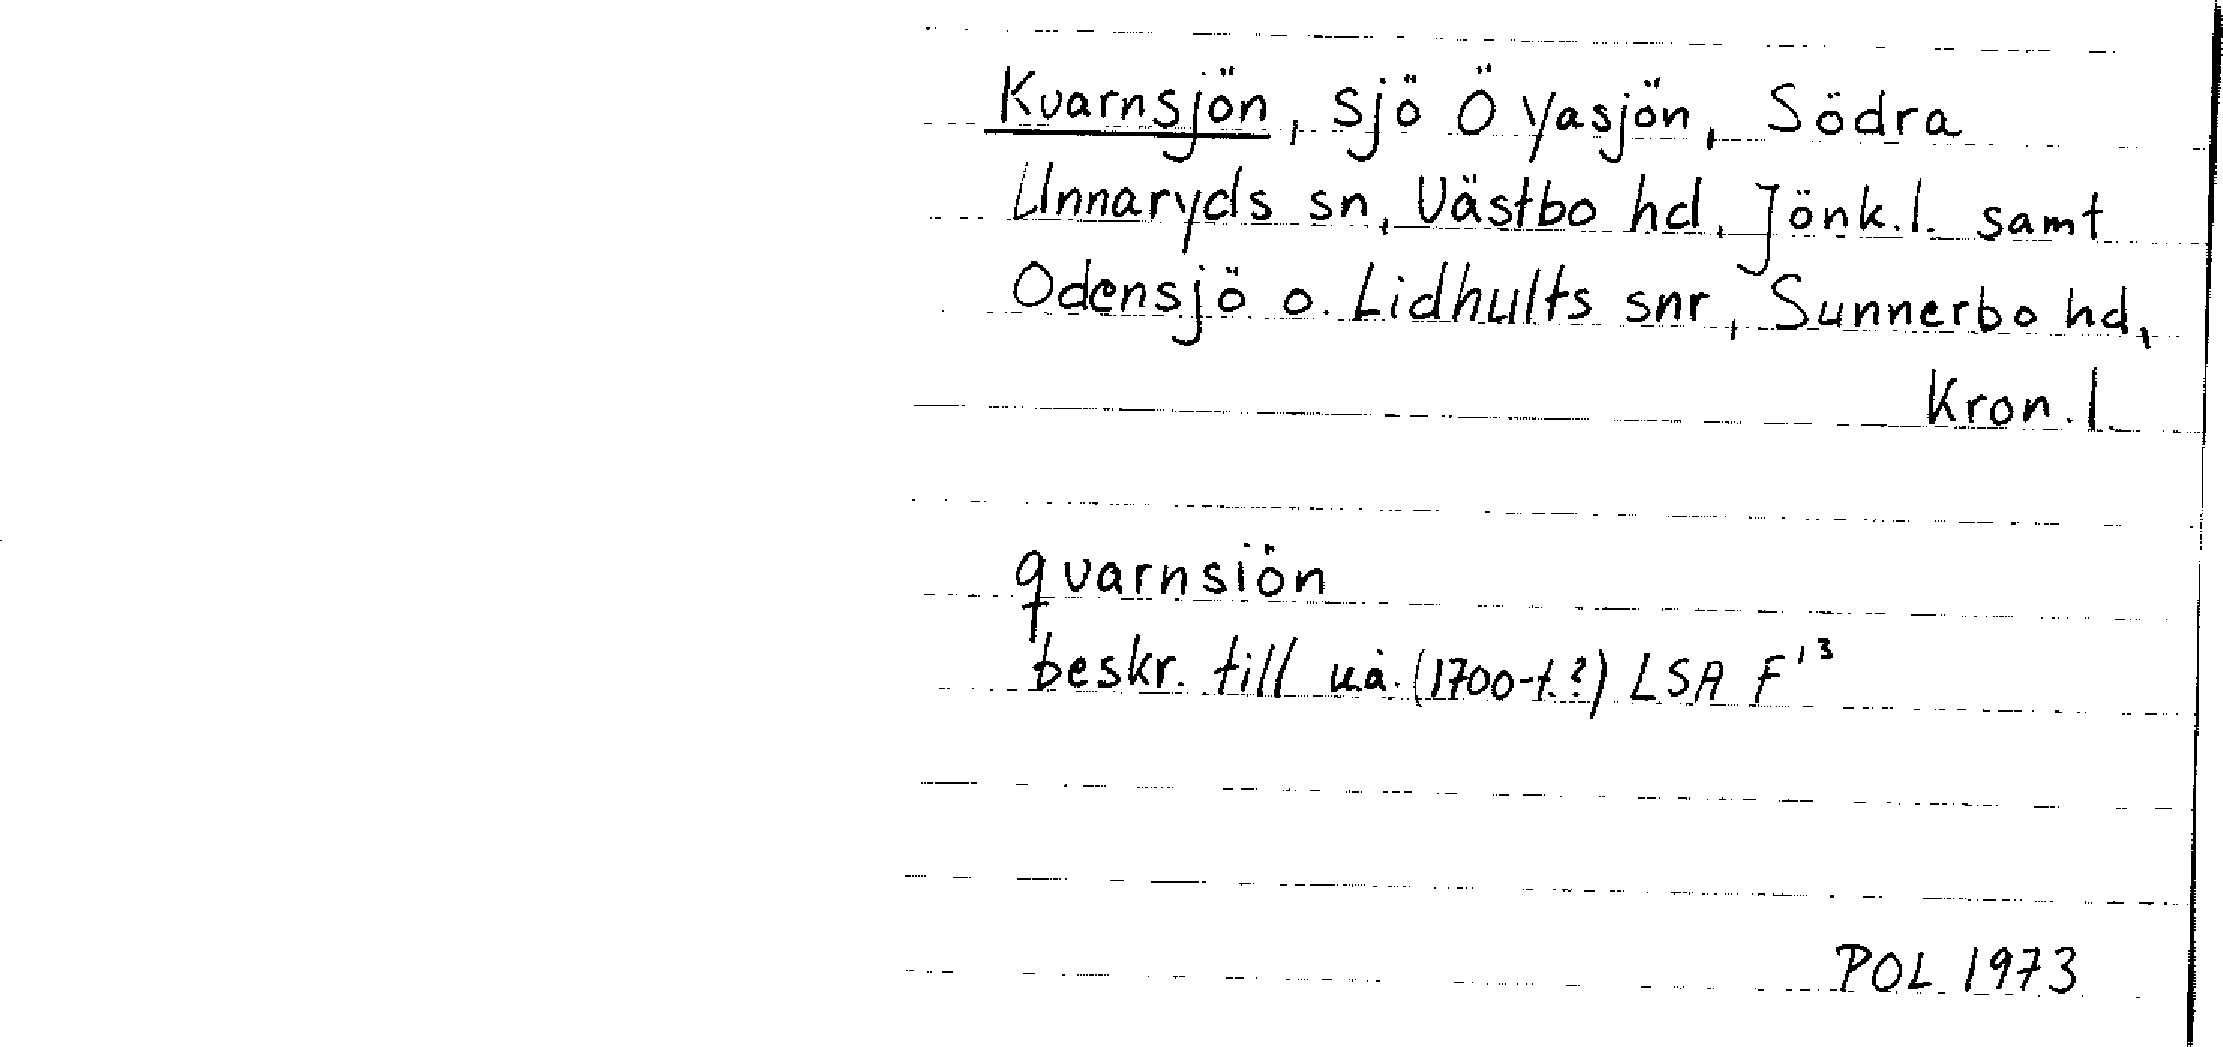 Kvarnsjön, sjö Ö Yasjön, Södra
Unnaryds sn, Västbo hd, Jönk.l. samt
Odensjö o. Lidhults snr, Sunnerbo hd,
Kron.l.
qvarnsiön
beskr. till uå. (1700-t.?) LSA F¹³
POL 1973